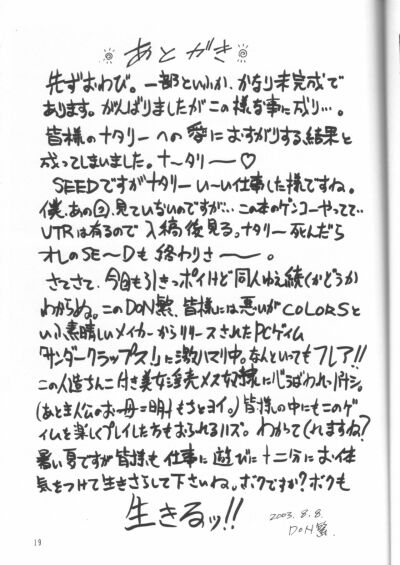 あとがき
先ずおわび。一部といふか、かなり未完成で
あります。がんばりましたがこの様な事に成り…。
皆様のナタリーへの愛におすがりする結果と
成ってしまいました。ナ〜タリ〜ー♡
SEEDですがナタリーい〜い仕事した様ですね。
僕、あの回、見ていないのですが…この本のゲンコーやってて…
VTRは有るので入稿後見る。ナタリー死んだら
オレのSE〜Dも終わりさ〜ー。
さてさて、今回も引きっポイけど同人ゆえ続くかどうか
わからぬ。このDON繁、皆様には悪いがCOLORSと
いふ素晴しいメイカーからリリースされたPCゲイム
「サンダークラップス!」に激ハマリ中。なんといってもフレア!!
この人造ちんこ付き美女
(あと主人公のお母さん もちとヨイ。)皆様の中にもこのゲ
イムを楽しくプレイした方もおられるハズ。わかってくれますね?
暑い夏ですが皆様も仕事に遊びに十二分にお体
気をつけて生きさらして下さいね。ボクですか?ボクも
生きるッ!!
2003.8.8.
DON繁.
19